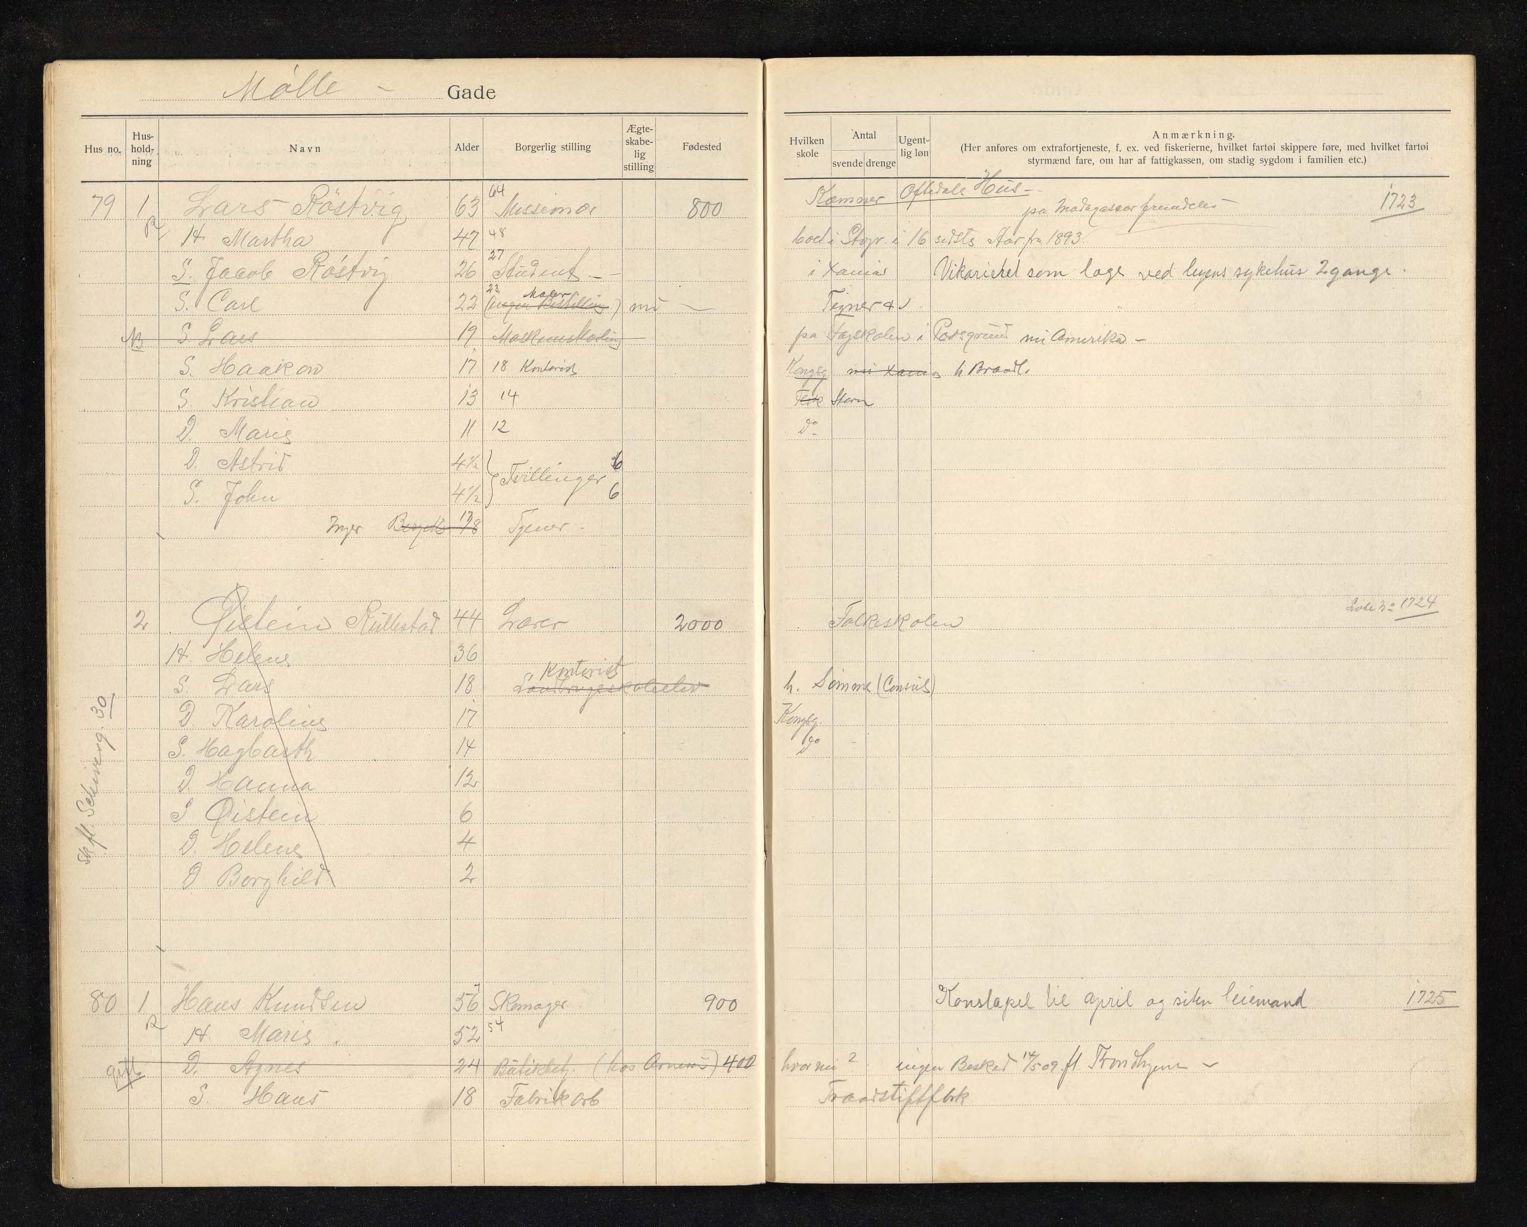 Mølle - Gade
Hus no. Hus-hold-ning Navn Alder Borgerlig stilling Ægte-skabe-lig stilling Fødested
79 1 Lars Røstvig 63 64 Missionær 800
H Martha 47 48
S. Jacob Røstvig 26 27 Student -
S. Carl 22 23 Maler (ingen Bestilling) nu -
S Lars 19 Maskinskoling
S. Haakon 17 18 Kontorist
S Kristian 13 14
D. Marie 11 12
D. Astrid 4½ Tvillinger 6
S. John 4½ 6
Inger 17/8 Tjener.
2 Øistein Rullestad 44 Lærer 2000
H Helene 36
Kontorist
S. Lars 18
D Karoline 17
S. Hagbarth 14
D. Hanna 12
S Øistein 6
D. Helene 4
D Borghild 2
fl. Schiveg. 30
80 1 Hans Knudsen 56 7 Skomager 900
H. Marie 52 54
gift D. Agnes 24 (hos Arnesen) 400
S. Hans 18 Fabrikarb
Hvilken skole Antal svende drenge Ugent-lig løn Anmærkning.
(Her anføres om extrafortjeneste, f. ex. ved fiskerierne, hvilket fartøi skippere føre, med hvilket fartøi
styrmænd fare, om har af fattigkassen, om stadig sygdom i familien etc.)
Kæmner Oftedals Hus - 1723
paa Madagascar fremdeles
boet i Stvgr. i 16 sidste Aar fra 1893.
i Xania Vikarieret som læge ved byens sykehus 2 gange.
Tegner
paa Fagskolen i Porsgrund nu Amerika -
Kongsg nu Xania h Braadl.
Storm
Do
Liste No 1724
Folkeskolen
h. Sømme (Consul)
Kongsg.
do
Konstapel til april og siden leiemand 1725
hvor nu? ingen Besked 14/5 09. fl. Trondhjem -
Traadstiftfbrk